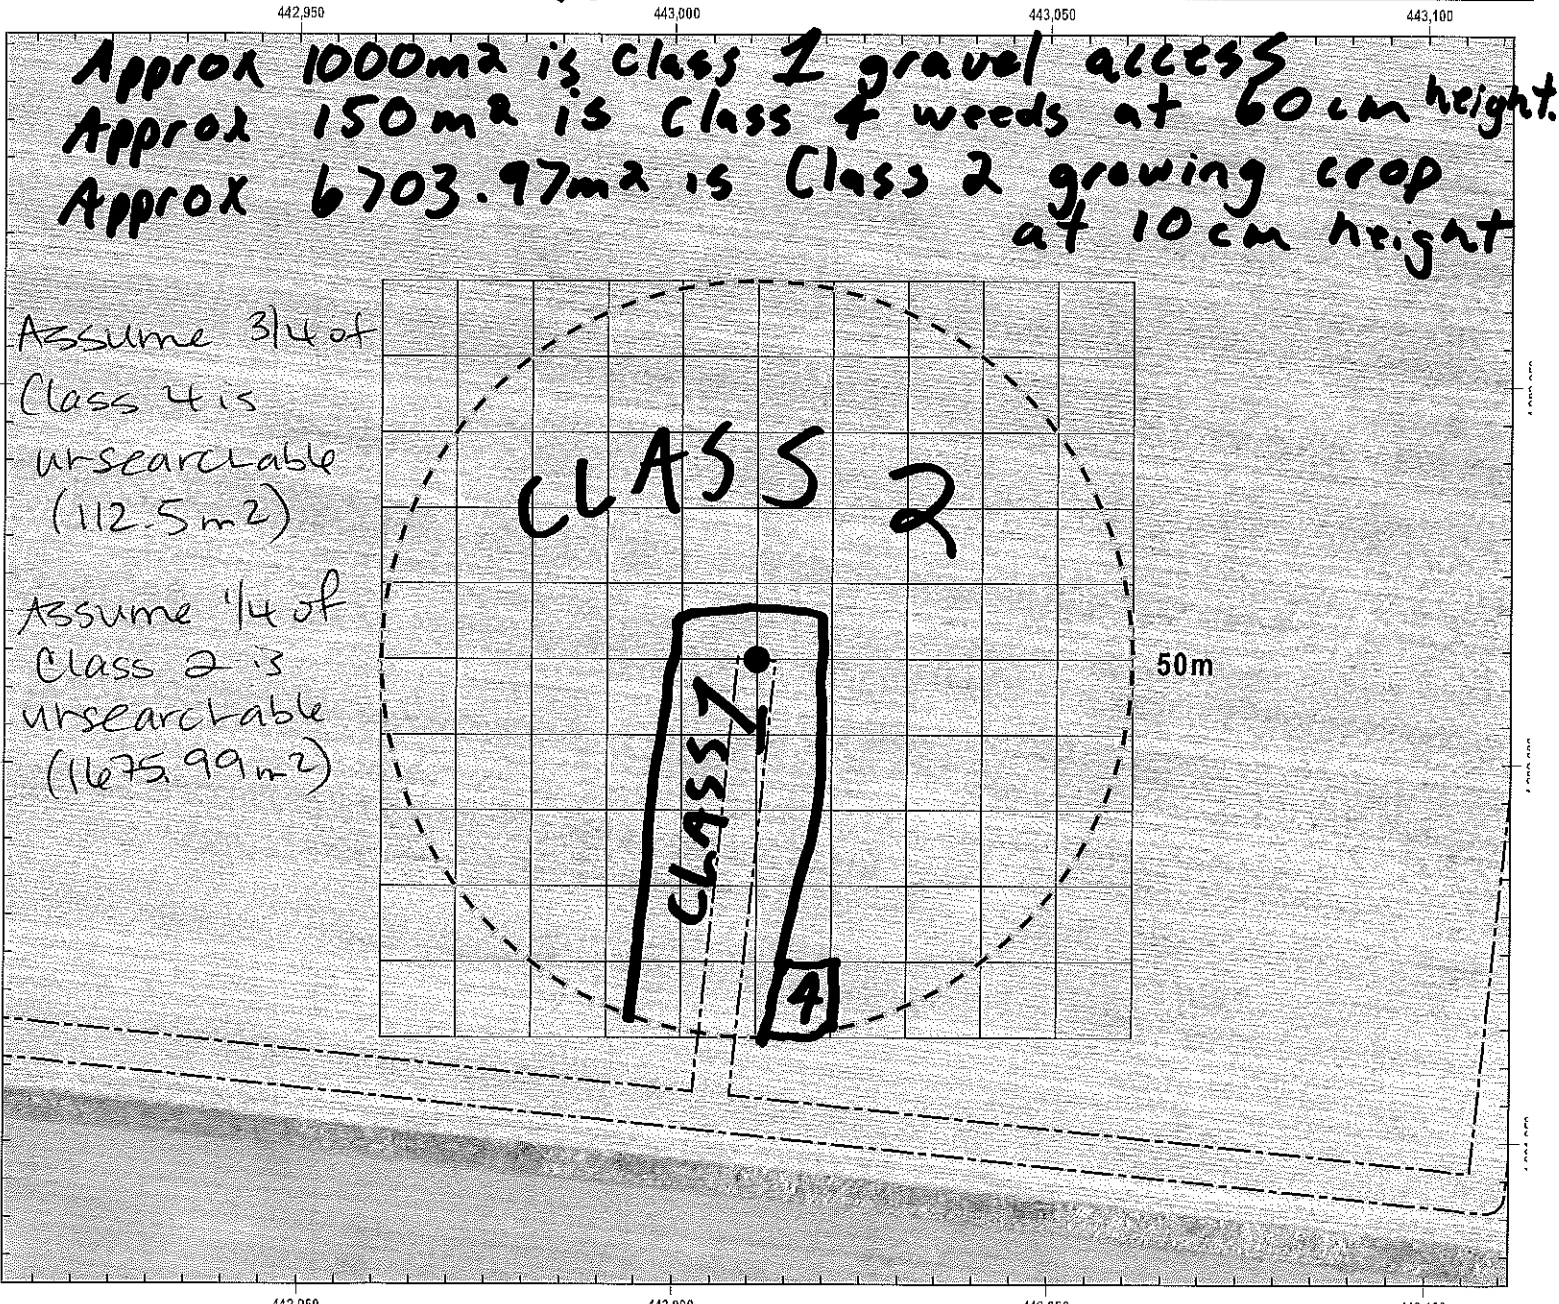 442,950 443,000 443,050 443,100
Approx 1000m2 is Class 1 gravel access
Approx 150m2 is Class 4 weeds at 60cm height.
Approx 6703.97m2 is Class 2 growing crop
at 10cm height
Assume 3/4 of
Class 4 is
unsearchable
(112.5m2)
Assume 1/4 of
Class 2 is
unsearchable
(1675.99m2)
CLASS 2
50m
CLASS 1
4